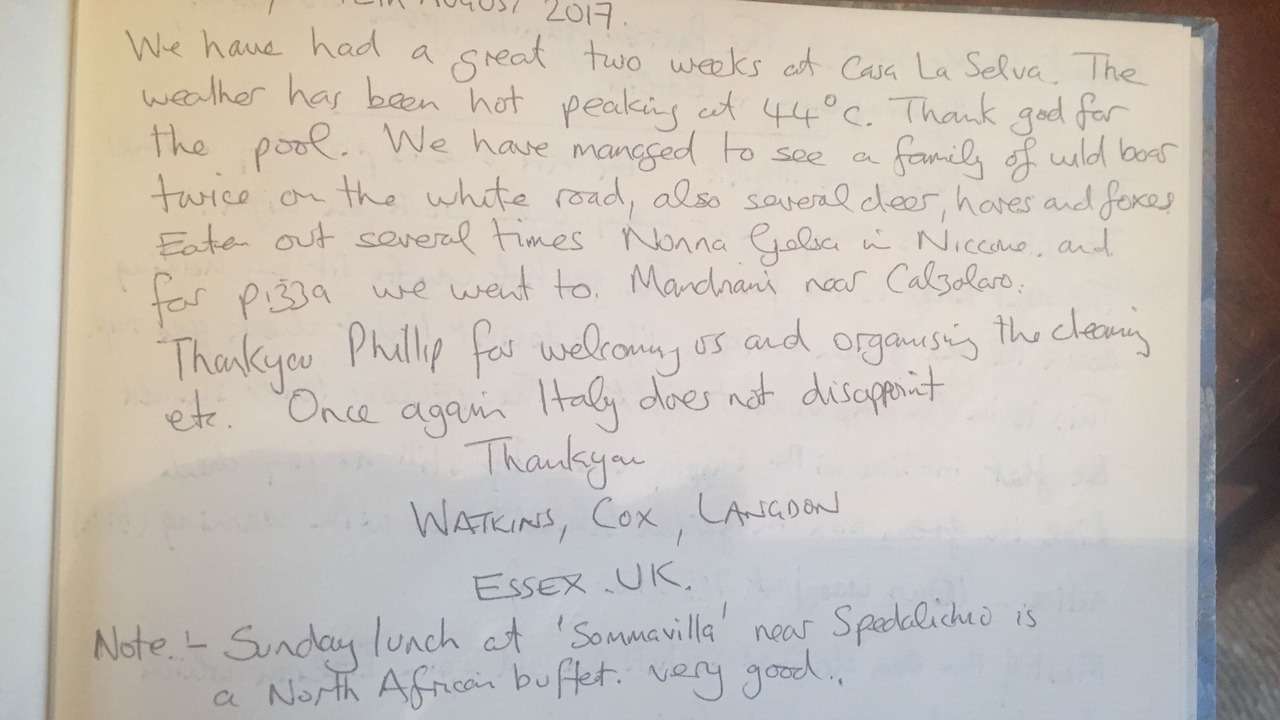 August 2017.
We have had a great two weeks at Casa La Selva. The
weather has been hot peaking at 44°c. Thank god for
the pool. We have managed to see a family of wild boar
twice on the white road, also several deer, hares and foxes
Eaten out several times Nonna Gelsa in Niccone. and
for pizza we went to. Mandriani near Calzolaro.
Thankyou Phillip for welcoming us and organising the cleaning
etc. Once again Italy does not disappoint
Thankyou
WATKINS, COX, LANGDON
ESSEX. UK.
Note:- Sunday lunch at 'Sommavilla' near Spedalichio is
a North African buffet. very good..